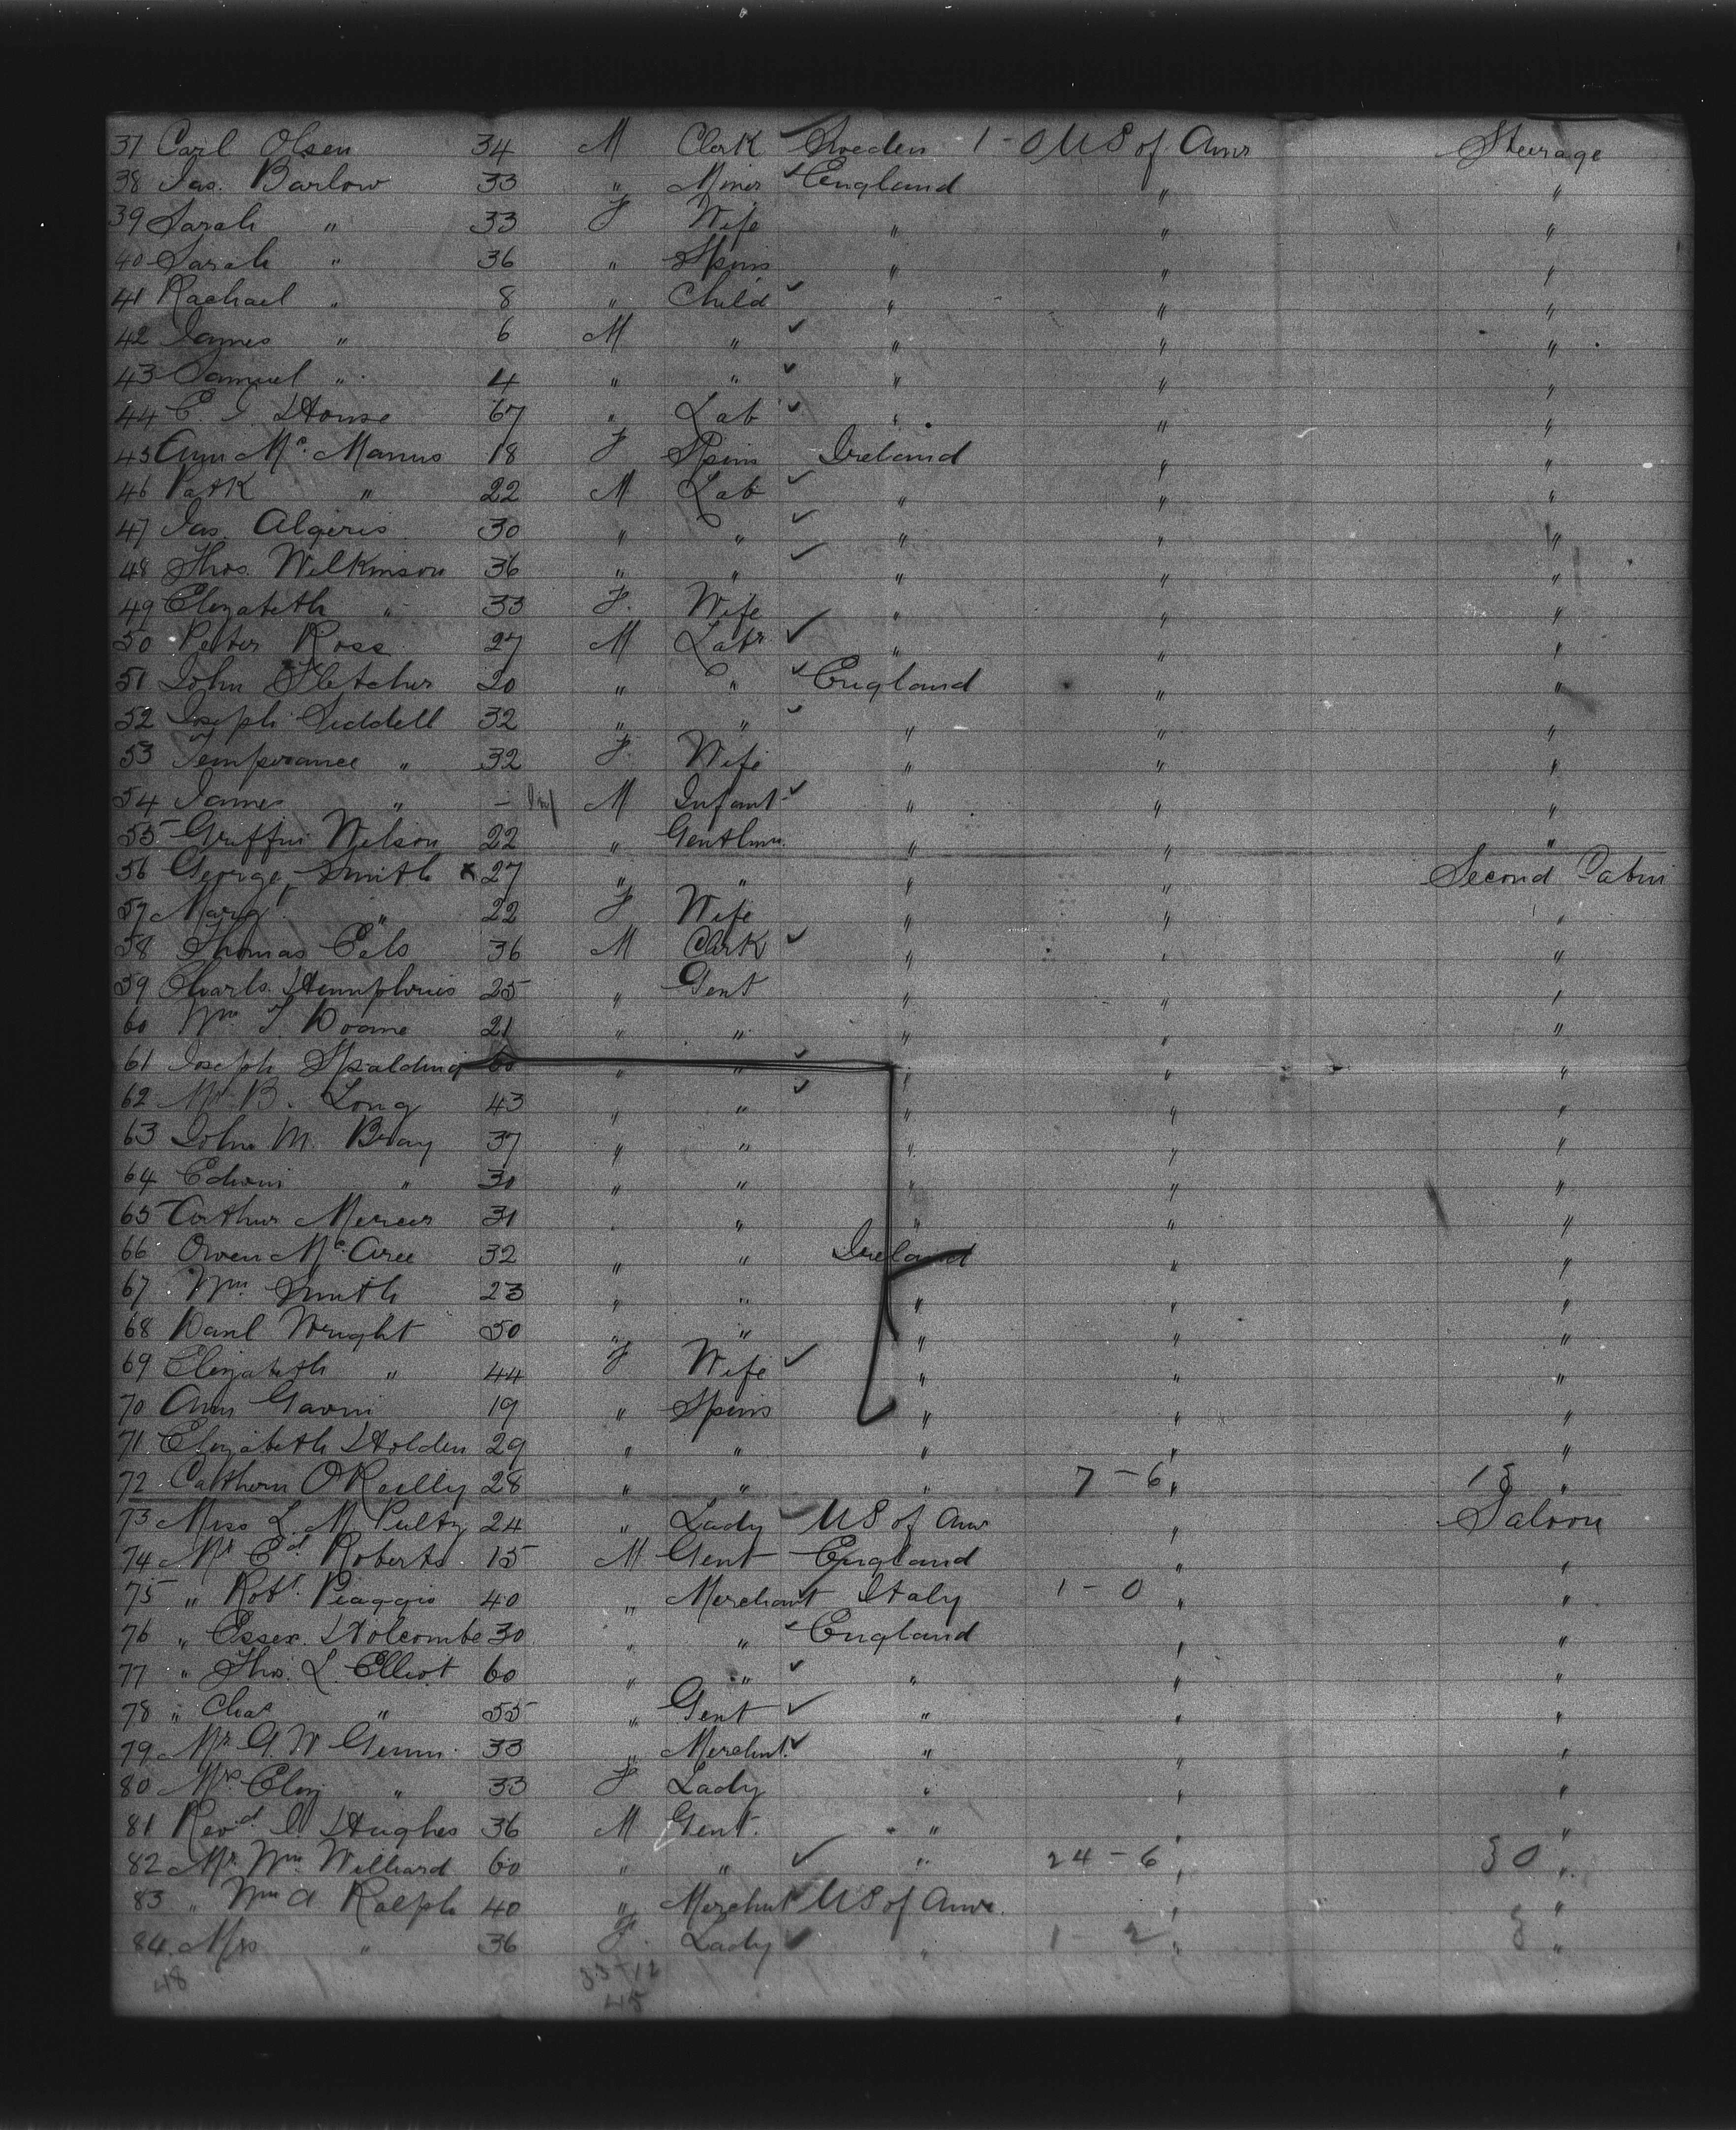 37 Carl Olsen 34 M Clerk Sweden 1 - 0 US of Amr Steerage
38 Jas. Barlow 33 " Miner England " "
39 Sarah " 33 F Wife " " "
40 Sarah " 36 " Spins " " "
41 Rachael " 8 " Child " " "
42 James " 6 M " " " "
43 Samuel " 4 " " " " "
44 E. J. House 67 " Lab " " "
45 Ann Mc Manus 18 F Spins Ireland " "
46 Patk " 22 M Lab " " "
47 Jas. Algeris 30 " " " " "
48 Thos. Wilkinson 36 " " " " "
49 Elizabeth " 33 F. Wife " " "
50 Peter Ross 27 M Labr " " "
51 John Fletcher 20 " " England " "
52 Joseph Liddell 32 " " " " "
53 Temperance " 32 F. Wife " " "
54 James " - Inf M Infant " " "
55 Griffin Wilson 22 " Gentlmn. " " "
56 George Smith x 27 " " " " Second Cabin
57 Margt " 22 F Wife " " "
58 Thomas Eels 36 M Clerk " " "
59 Charls. Humphries 25 " Gent " " "
60 Wm T Doane 21 " " " " "
61 Joseph Spalding 60 " " " " "
62 B. Long 43 " " " " "
63 John M. Bray 37 " " " " "
64 Edwin " 30 " " " " "
65 Arthur Mercer 31 " " " " "
66 Owen Mc Aree 32 " " Ireland " "
67 Wm. Smith 23 " " " " "
68 Danl Wright 50 " " " " "
69 Elizabeth " 44 F Wife " " "
70 Ann Gavin 19 " Spins " " "
71 Elizabeth Holden 29 " " " " "
72 Cathern O'Reilly 28 " " " 7 - 6 " 18 "
73 Miss L. M. 24 " Lady US of Amr " Saloon
74 Mr Ed Roberts 15 M Gent England " "
75 " Robt. Piaggio 40 " Merchant Italy 1 - 0 " "
76 " Essex Holcombe 30 " " England " "
77 " Tho. L. Elliot 60 " " " " "
78 " Chas " 55 " Gent " " "
79 Mr G. W Genn 33 " Merchnt. " " "
80 Mrs Eliz " 33 F Lady " " "
81 Revd. J. Hughes 36 M Gent. " " "
82 Mr Wm Williard 60 " " " 24 - 6 " 30 "
83 " Wm A Ralph 40 " Merchnt US of Amr. " "
84 Mrs " 36 F. Lady " 1 - 2 " 3 "
48 33-12
45